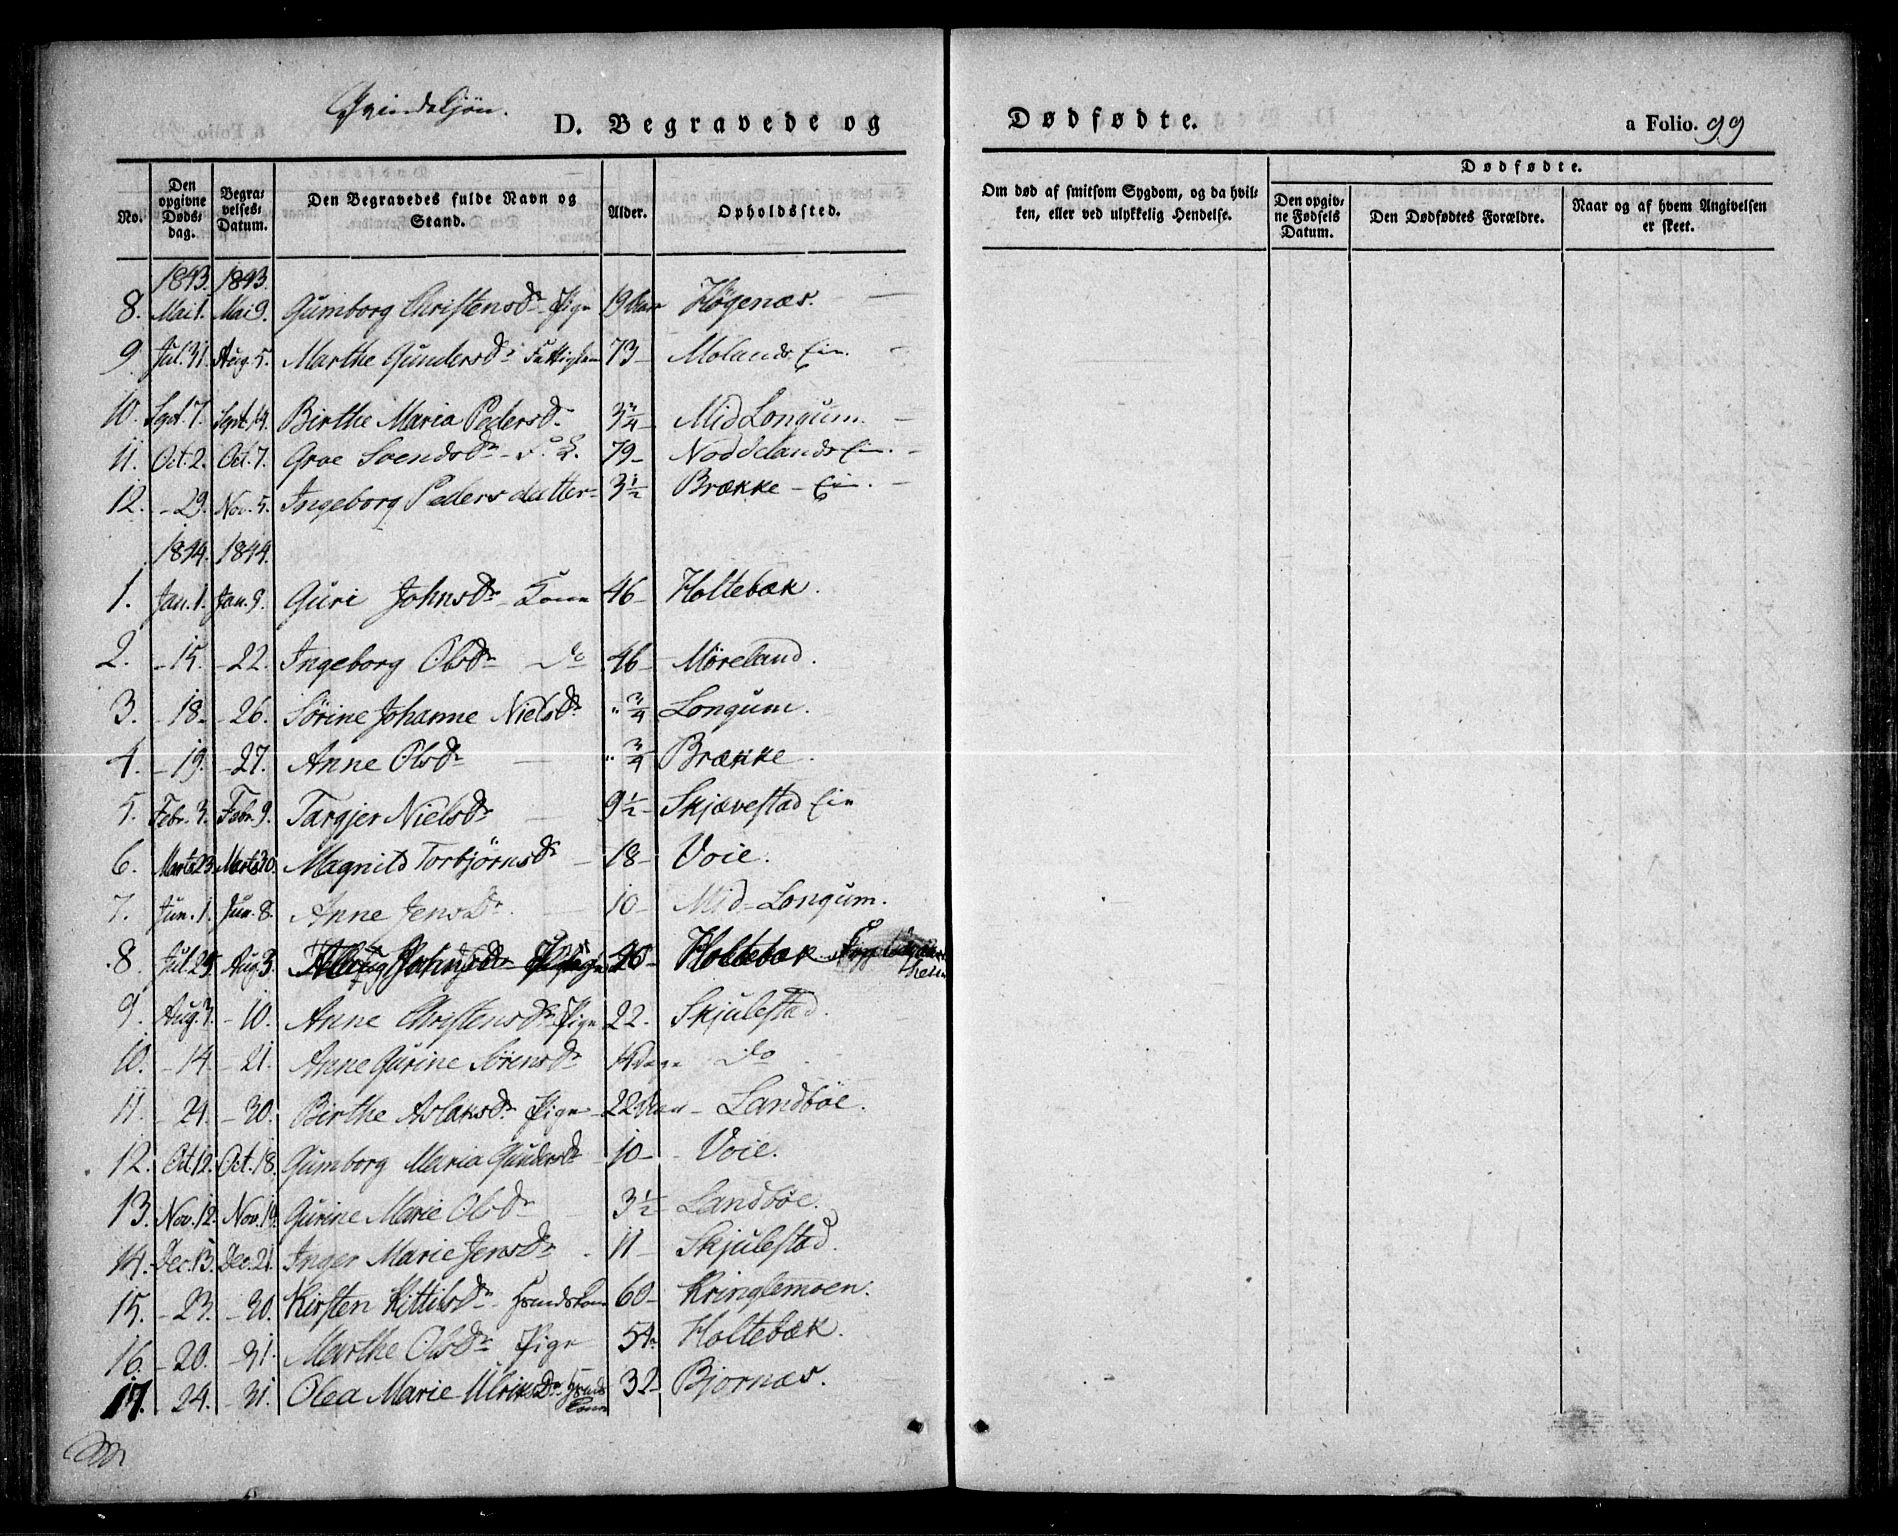 Qvindekjøn.
D. Begravede og Dødfødte. a Folio. 99
No. Den opgivne Døds-dag. Begra-velses-Datum. Den Begravedes fulde Navn og Stand. Alder. Opholdssted. Om død af smitsom Sygdom, og da hvil-ken, eller ved ulykkelig Hendelse. Dødfødte. Den opgiv-ne Fødsels Datum. Den Dødfødtes Forældre. Naar og af hvem Angivelsen er skeet.
1843. 1843.
8. Mai 1. Mai 9. Gumborg Christensdr Pige 19 Aar Høgenæs. —
9. Jul. 31. Aug. 5. Marthe Gundersdr Fattiglem 73 — Molands Eie. —
10. Sept. 7. Sept. 14. Birthe Maria Pedersdr 3 3/4 — Mid Longum. —
11. Oct. 2. Oct. 7. Groe Svendsdr — F. L. 79 — Noddelands Eie. —
12. — 29. Nov. 5. Ingeborg Pedersdatter — 3 1/2 Brække — Eie. —
1844. 1844.
1. Jan. 1. Jan. 9. Guri Johnsdr — Kone 46 — Holtebæk.
2. — 15. — 22. Ingeborg Olsdr — do 46 — Møreland.
3. — 18 — — 26. Sørine Johanne Nielsdr " 3/4 Longum.
4. — 19. — 27. Anne Olsdr — " 3/4 Brække.
5. Febr. 3. Febr. 9. Targjer Nielsdr — 9 1/2 — Skjævestad Eie
6. Marts 23. Marts 30. Magnild Torbjørnsdr — 18 — Voie.
7. Jun. 1. Jun. 8. Anne Jensdr. — 10 — Mid-Longum.
8. Jul. 25. Aug. 3. Holtebæk
9. Aug. 3. — 10. Anne Christensdr Pige 22. Skjulestad.
10. — 14. — 21. Anne Gurine Sørensdr Dage do
11. — 24. — 30. Birthe Aslaksdr Pige — 22 Aar — Landbøe.
12. Oct. 12. Oct. 18. Gumborg Maria Gundersdr — 10 — — Voie.
13. Nov. 12. Nov. 19. Gurine Marie Olsdr 3 1/2 Landbøe.
14. Dec. 13. Dec. 21. Inger Marie Jensdr — 11 — Skjulestad.
15. — 23. — 30. Kirsten Kittilsdr Hmdskone 60 — Kringlemoen.
16. — 20. — 31. Marthe Olsdr Pige 54 — Holtebæk.
17. 24. — 31. Olea Marie Ulriksdr Hmds Kone 32 — Bjornæs.